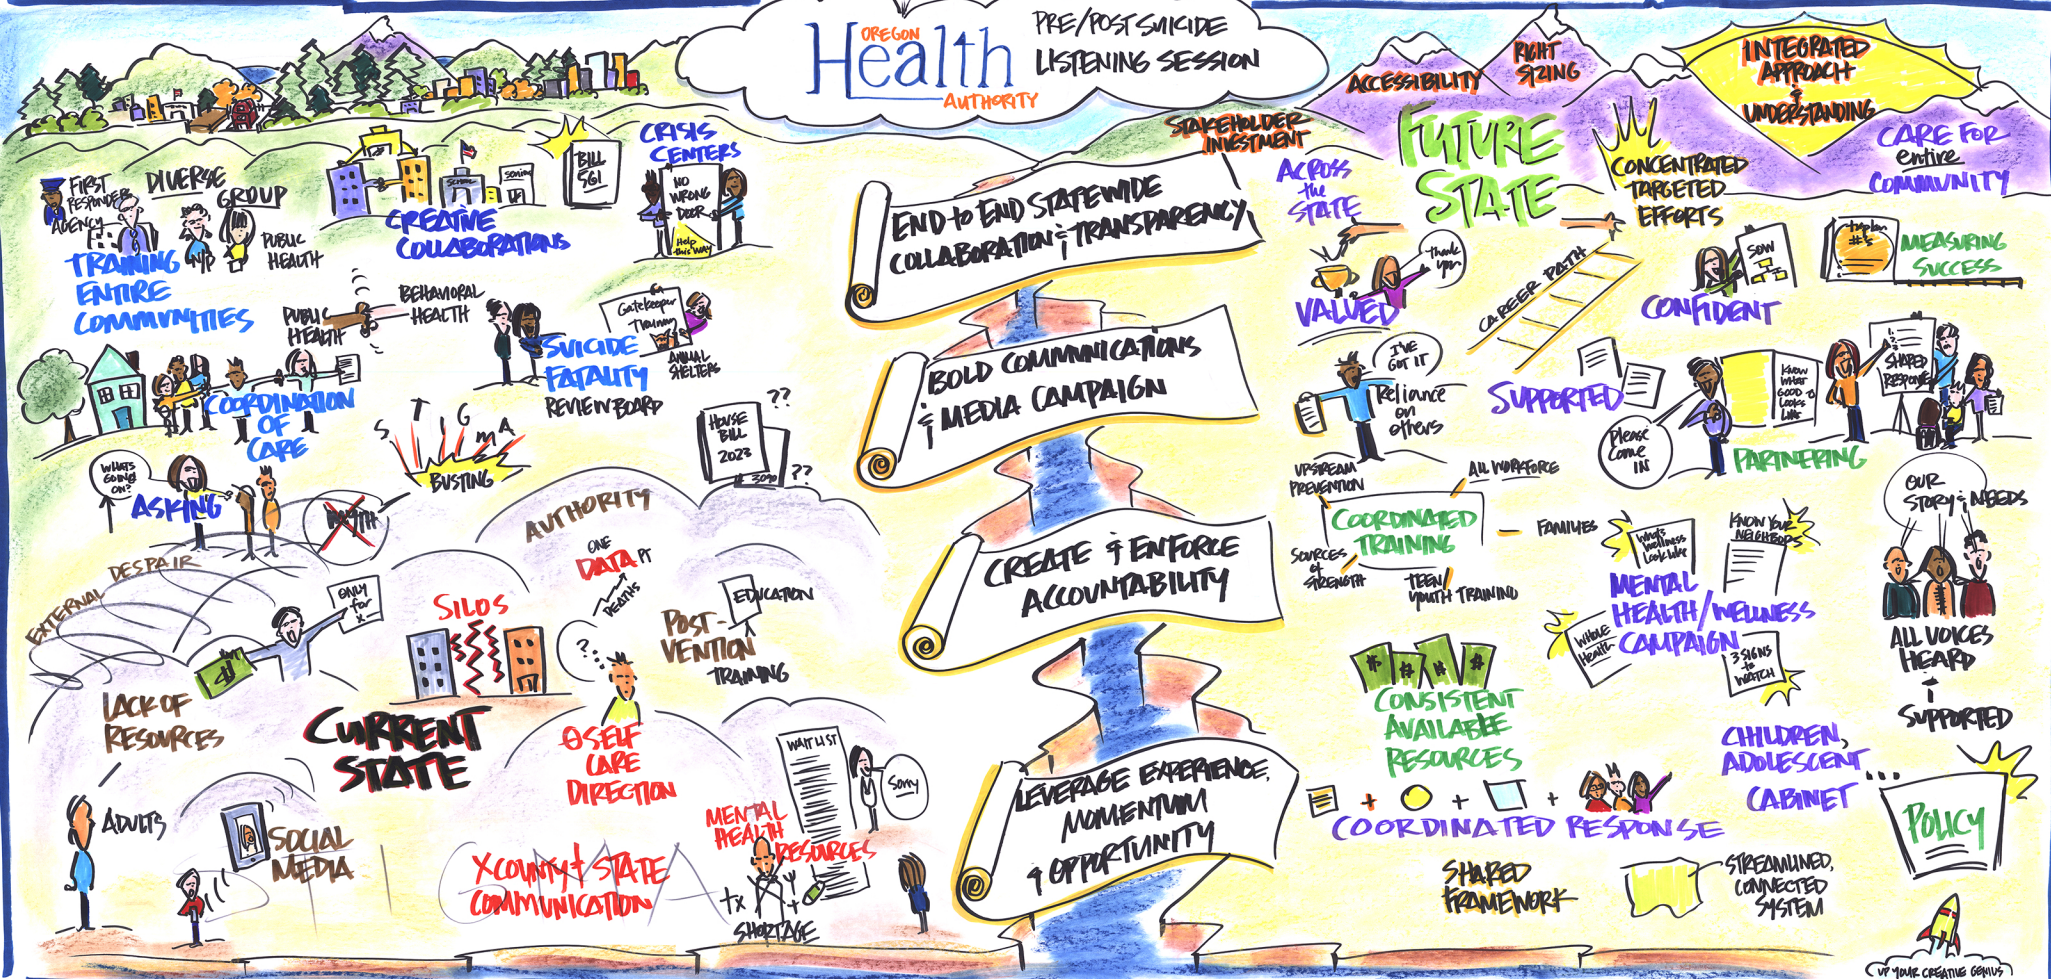 OREGON
Health
AUTHORITY
PRE/POST SUICIDE
LISTENING SESSION
FIRST
RESPONDER
AGENCY
DIVERSE
GROUP
PUBLIC
HEALTH
TRAINING
ENTIRE
COMMUNITIES
CREATIVE
COLLABORATIONS
SCHOOL
BILL
561
CRISIS
CENTERS
NO
WRONG
DOOR
Help
this way
PUBLIC
HEALTH
BEHAVIORAL
HEALTH
SUICIDE
FATALITY
REVIEW BOARD
Gatekeeper
Training
ANIMAL
SHELTERS
COORDINATION
OF
CARE
STIGMA
BUSTING
HOUSE
BILL
2023
??
3090
??
WHATS
GOING
ON?
ASKING
MYTH
DESPAIR
EXTERNAL
AUTHORITY
ONE
DATA PT
DEATHS
EDUCATION
POST-
VENTION
TRAINING
ONLY
for
X-
$
LACK OF
RESOURCES
SILOS
?
CURRENT
STATE
SELF
CARE
DIRECTION
WAITLIST
Sorry
MENTAL
HEALTH
RESOURCES
TX
SHORTAGE
ADULTS
SOCIAL
MEDIA
STIGMA
X COUNTY + STATE
COMMUNICATION
END to END STATEWIDE
COLLABORATION & TRANSPARENCY
BOLD COMMUNICATIONS
& MEDIA CAMPAIGN
CREATE & ENFORCE
ACCOUNTABILITY
LEVERAGE EXPERIENCE,
MOMENTUM
& OPPORTUNITY
STAKEHOLDER
INVESTMENT
ACCESSIBILITY
RIGHT
SIZING
INTEGRATED
APPROACH
&
UNDERSTANDING
FUTURE
STATE
ACROSS
the
STATE
CONCENTRATED
TARGETED
EFFORTS
CARE FOR
entire
COMMUNITY
Thank
you
VALUED
CAREER PATH
SOW
CONFIDENT
#'s
MEASURING
SUCCESS
I'VE
GOT IT
Reliance
on
others
SUPPORTED
Please
Come
IN
KNOW
WHAT
GOOD
LOOKS
LIKE
SHARED
RESPONSE
PARTNERING
UPSTREAM
PREVENTION
ALL WORKFORCE
COORDINATED
TRAINING
FAMILIES
SOURCES
of
STRENGTH
TEEN/
YOUTH TRAINING
What's
Wellness
Look like
KNOW YOUR
NEIGHBORS
MENTAL
HEALTH/WELLNESS
CAMPAIGN
WHOLE
Health
3 SIGNS
to
WATCH
OUR
STORY & NEEDS
ALL VOICES
HEARD
+
SUPPORTED
$ $ $ $
CONSISTENT
AVAILABLE
RESOURCES
CHILDREN,
ADOLESCENT...
CABINET
+ + +
COORDINATED RESPONSE
POLICY
SHARED
FRAMEWORK
STREAMLINED,
CONNECTED
SYSTEM
UP YOUR CREATIVE GENIUS